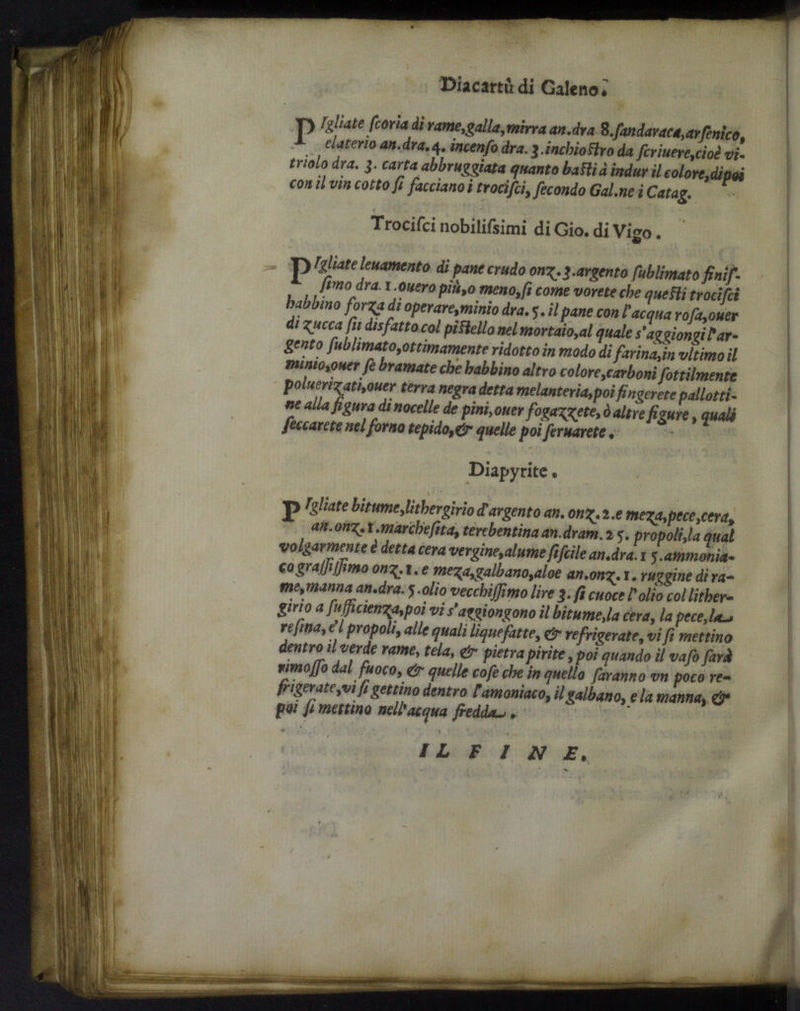 Diacartù di Galeno.
PIgliate ſcoria di rame,galla,mirra an.dra 8.ſandaraca,arſenico,
elaterio an.dra.4. incenſo dra. 3.inchioſtro da ſcriuere,cioè vi-
triolo dra. 3. carta abbruggiata quanto baſti à indur il colore,dipoi
con il vin cotto ſi facciano i trociſci, ſecondo Gal.ne i Catag.
Trociſci nobiliſsimi di Gio. di Vigo.
PIgliate leuamento di pane crudo onʒ.3.argento ſublimato finiſ-
ſimo dra.1.ouero più,o meno,ſi come vorete che queſti trociſci
habbino forza di operare,minio dra. 5. il pane con l'acqua roſa,ouer
di zucca ſii disfatto col piſtello nel mortaio,al quale s'aggiongi l'ar-
gento ſublimato,ottimamente ridotto in modo di farina,in vltimo il
minio,ouer ſe bramate che habbino altro colore,carboni ſottilmente
poluerizati,ouer terra negra detta melanteria,poi fingerete pallotti-
ne alla figura di nocelle de pini,ouer fogazzete, ò altre figure, quali
ſeccarete nel forno tepido,& quelle poi ſeruarete.
Diapyrite.
PIgliate bitume,lithergirio d'argento an. onʒ.2.e meza,pece,cera,
an.onʒ.1.marcheſita, terebentina an.dram.25. propoli,la qual
volgarmente è detta cera vergine,alume fiſcile an.dra.15.ammonia-
co graſſiſſimo onʒ.1. e meza,galbano,aloe an.onʒ.1. ruggine di ra-
me,manna an.dra. 5.olio vecchiſſimo lire 3. ſi cuoce l'olio col lither-
girio a ſufficienza,poi vi s'aggiongono il bitume,la cera, la pece,la
reſina, e'l propoli, alle quali liquefatte, & refrigerate, vi ſi mettino
dentro il verde rame, tela, & pietra pirite, poi quando il vaſo ſarà
rimoſſo dal fuoco, & quelle coſe che in quello ſaranno vn poco re-
frigerate,vi ſi gettino dentro l'amoniaco, il galbano, e la manna, &
poi ſi mettino nell'acqua fredda.
IL FINE.